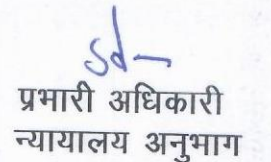 sd-
प्रभारी अधिकारी
न्यायालय अनुभाग